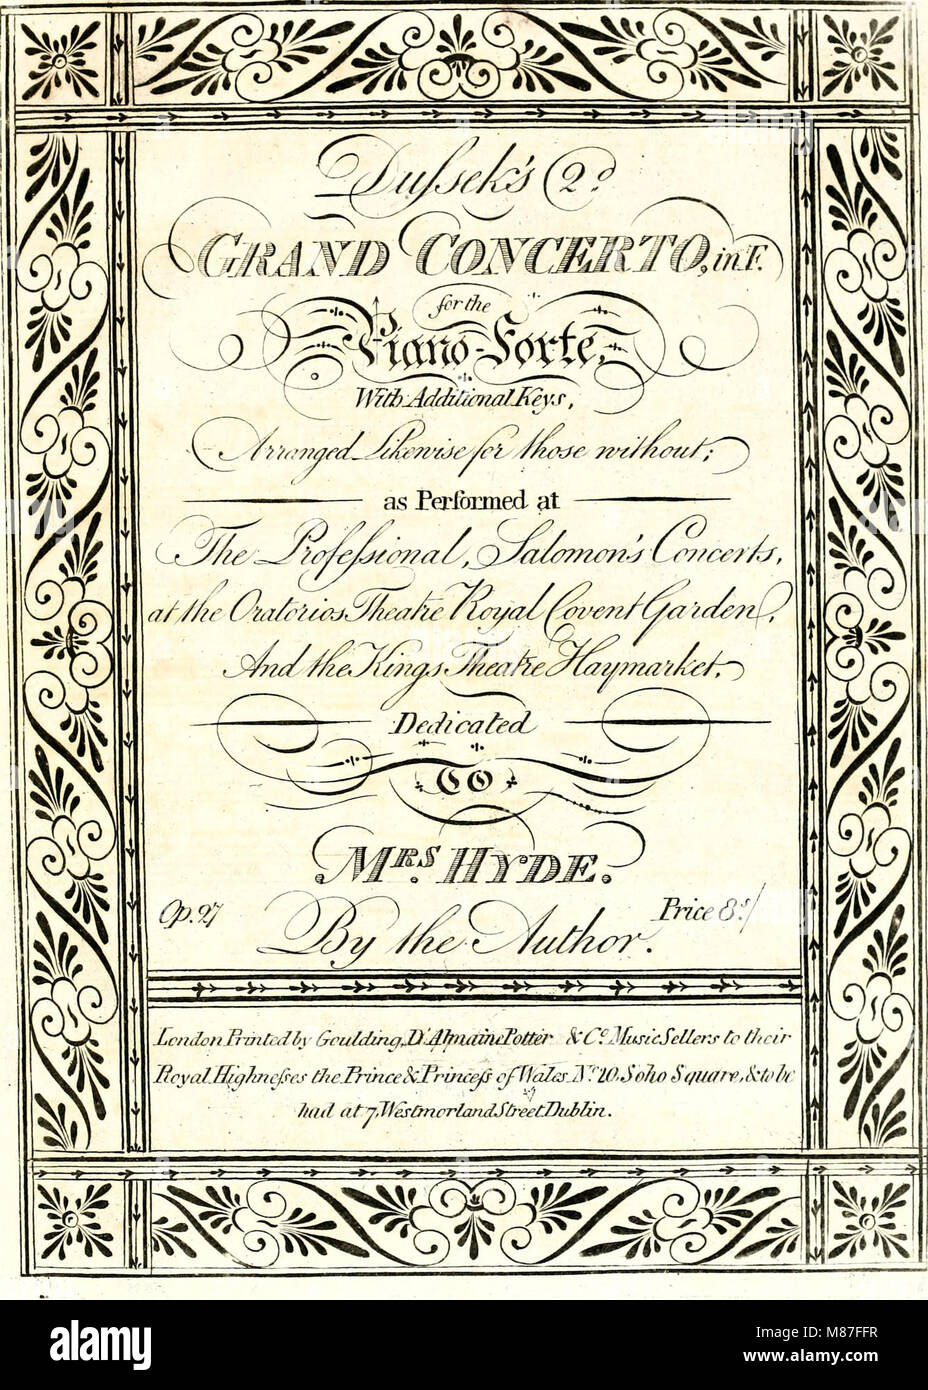 Duſsek's 2.d
GRAND CONCERTO, in F.
for the
Piano-Forte,
With Additional Keys,
Arranged Likewise for those without;
as Performed at
The Profeſsional, Salomon's Concerts,
at the Oratorios Theatre Royal Covent Garden,
And the Kings Theatre Haymarket.
Dedicated
TO
MRS. HYDE.
Op. 27
Price 8s/
By the Author.
London Printed by Goulding, D'Almaine Potter & Co. Music Sellers to their
Royal Highneſses the Prince & Princeſs of Wales No. 20, Soho Square, & to be
had at 7, Westmorland Street Dublin.
alamy
Image ID: M87FFR
www.alamy.com